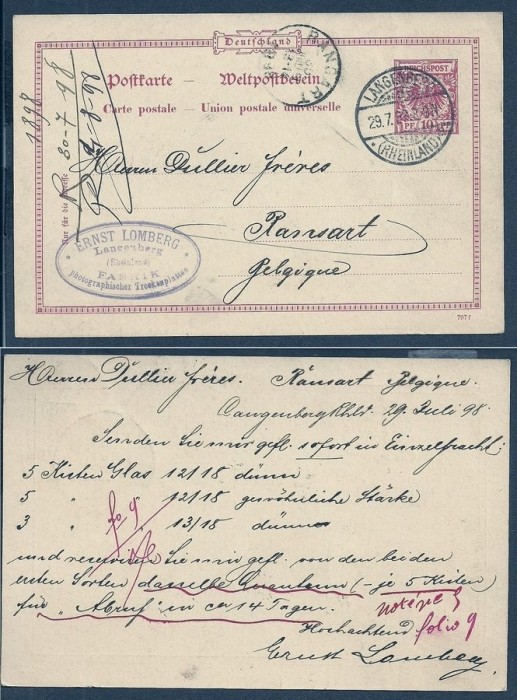 Deutschland
Postkarte — Weltpostverein
Carte postale — Union postale universelle
REICHSPOST
10 PF 10
LANGENBERG
29.7.98
* (RHEINLAND) *
RANSART
1898
R 30-7-98
R 2-8-98
Nur für die Adresse
Herren Dullier Frères
Ransart
Belgique
ERNST LOMBERG
Langenberg
(Rheinland)
FABRIK
photographischer Trockenplatten
797 f
Herren Dullier frères. Ransart Belgique.
Langenberg Rhld. 29. Juli 98.
Senden Sie mir gefl. sofort in Einzelfracht:
5 Kisten Glas 12/18 dünn
5 " " 12/18 gewöhnliche Stärke
3 " " 13/18 dünn
fo 9
und reservieren Sie mir gefl. von den beiden
ersten Sorten dasselbe Quantum (- je 5 Kisten)
für "Abruf" in ca 14 Tagen.
Hochachtend
folio 9
Ernst Lomberg